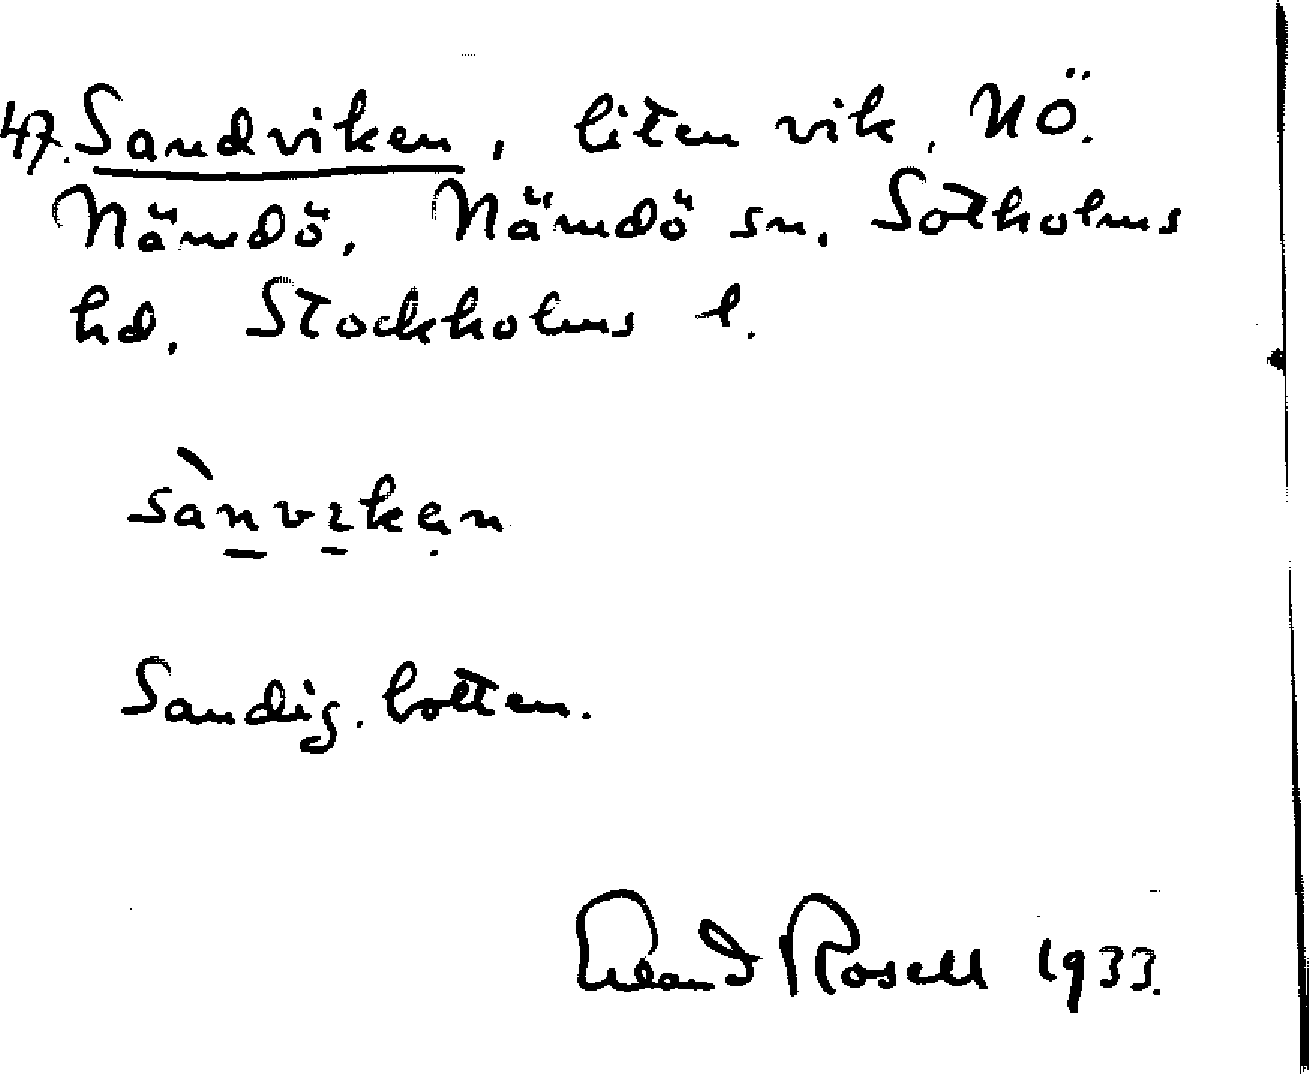 47. Sandviken, liten vik, NÖ.
Nämdö, Nämdö sn, Sotholms
hd, Stockholms l.
sànvikən
Sandig. botten.
Erland Rosell 1933.